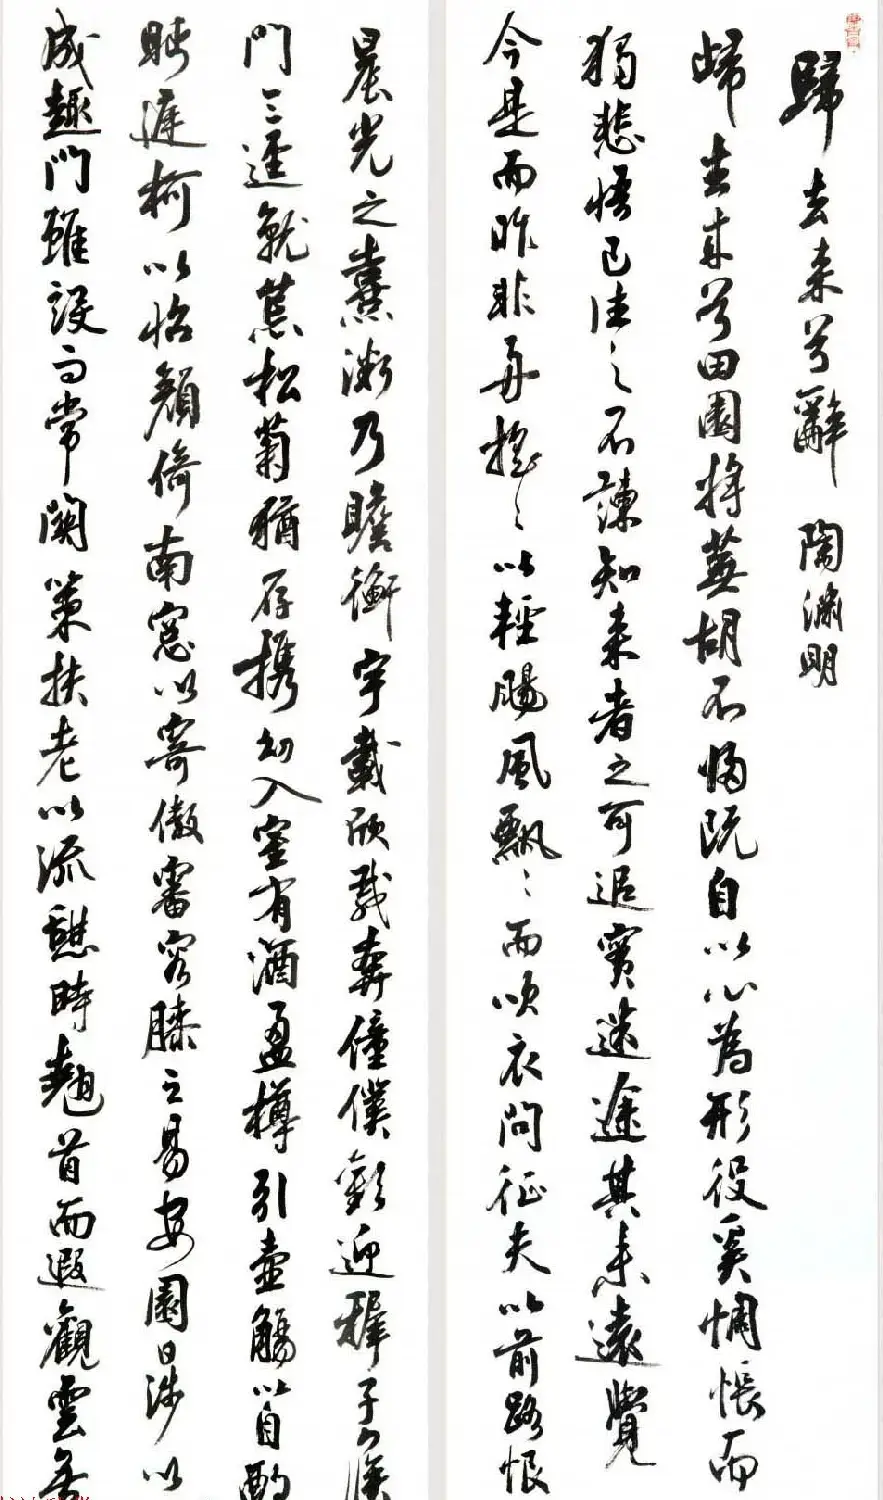 歸去来兮辭 陶淵明
歸去来兮田園將蕪胡不歸既自以心為形役奚惆悵而
獨悲悟已往之不諫知来者之可追實迷途其未遠覺
今是而昨非舟搖〻以輕颺風飄〻而吹衣問征夫以前路恨
晨光之熹微乃瞻衡宇載欣載奔僮僕歡迎稚子候
門三逕就荒松菊猶存携幼入室有酒盈樽引壺觴以自酌
眄庭柯以怡顏倚南窓以寄傲審容膝之易安園日涉以
成趣門雖設而常關策扶老以流憩時翹首而遐觀雲無